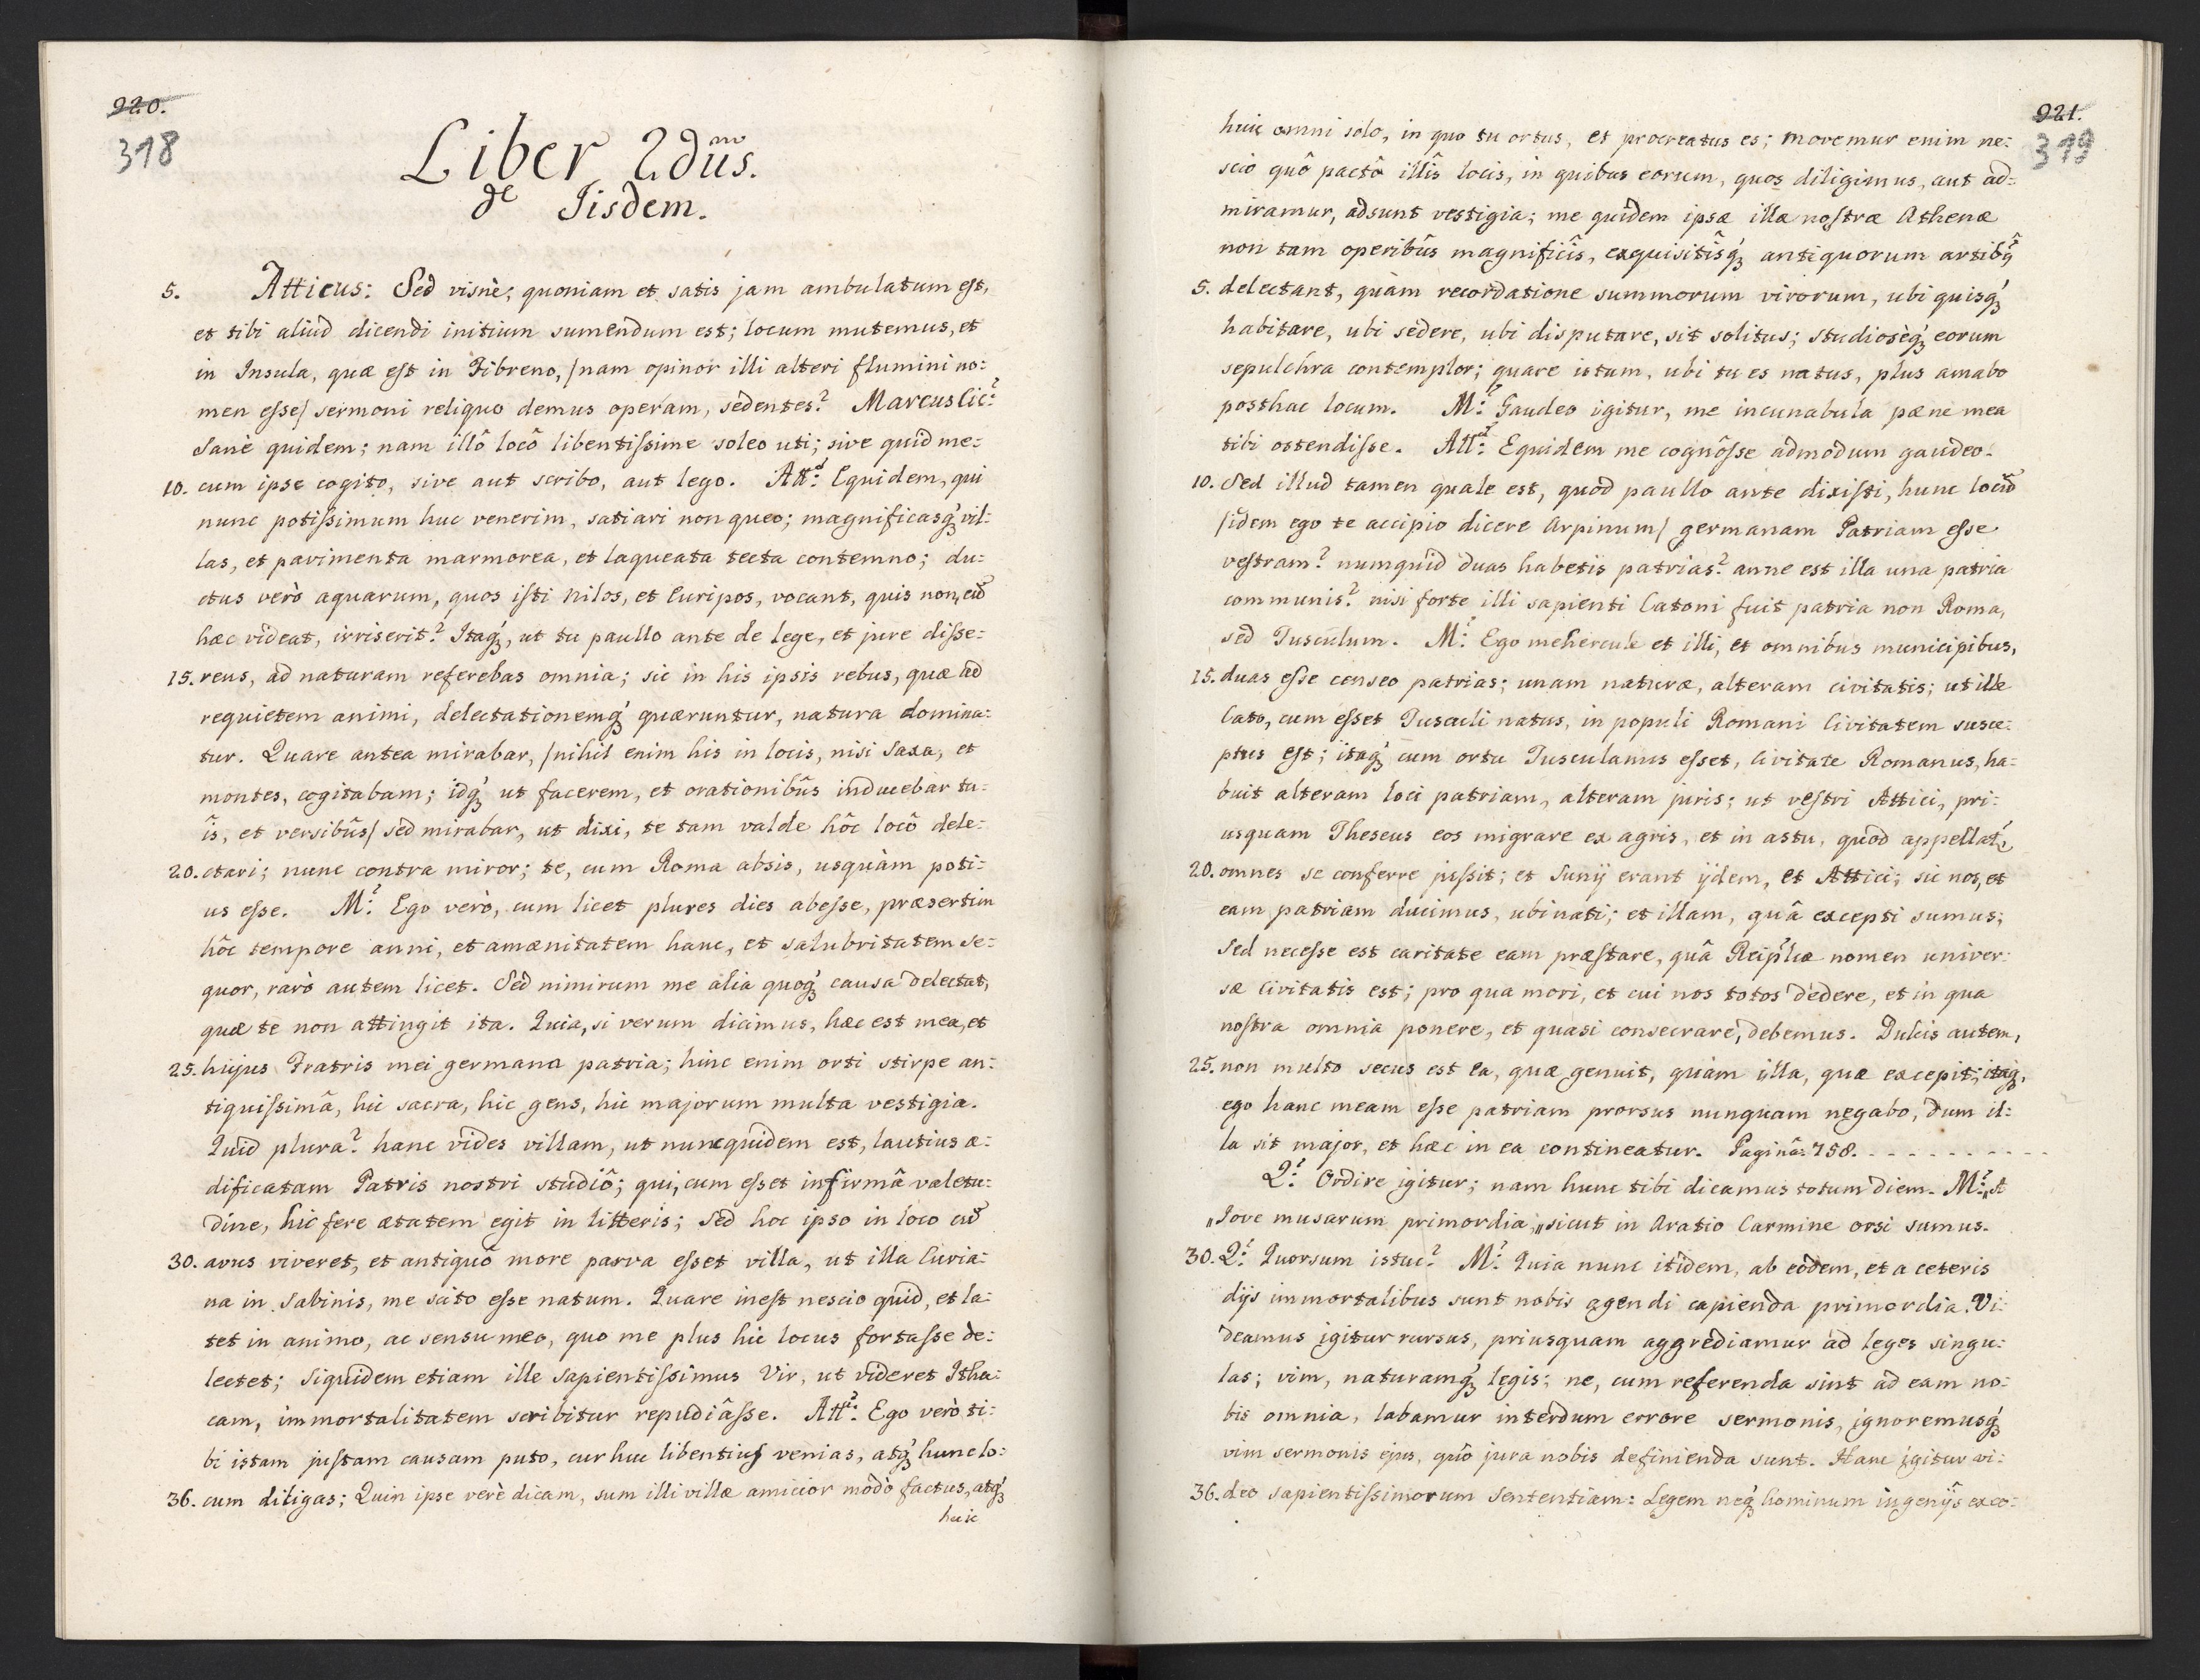 220.
318
Liber 2dus.
de Iisdem.
5. Atticus: Sed visnè, quoniam et satis jam ambulatum est,
et tibi aliud dicendi initium sumendum est; locum mutemus, et
in Insula, quæ est in Fibreno, /nam opinor illi alteri flumini no:
men esse/ sermoni reliquo demus operam, sedentes? Marcus Cic:
Sanè quidem; nam illô locô libentissime soleo uti; sive quid me:
10. cum ipse cogito, sive aut scribo, aut lego. Att: Equidem, qui
nunc potissimum huc venerim, satiari non queo; magnificasq́ꝫ vil:
las, et pavimenta marmorea, et laqueata tecta contemno; du:
ctus verò aquarum, quos isti Nilos, et Euripos, vocant, quis non, cū
hæc videat, irriserit? Itaq́ꝫ, ut tu paullo ante de lege, et jure disse:
15. rens, ad naturam referebas omnia; sic in his ipsis rebus, quæ ad
requietem animi, delectationemq́ꝫ quæruntur, natura domina:
tur. Quare antea mirabar, /nihil enim his in locis, nisi Saxa, et
montes, cogitabam; idq́ꝫ ut facerem, et orationibûs inducebar tu:
îs, et versibûs/ sed mirabar, ut dixi, te tam valde hôc locô dele:
20. ctari; nunc contra miror; te, cum Roma absis, usquàm poti:
us esse. M: Ego verò, cum licet plures dies abesse, præsertim
hôc tempore anni, et amænitatem hanc, et salubritatem se:
quor, rarò autem licet. Sed nimirum me alia quoq́ꝫ causa delectat,
quæ te non attingit ita. Quia, si verum dicimus, hæc est mea, et
25. hujus Fratris mei germana patria; hinc enim orti stirpe an:
tiquissimâ, hic sacra, hic gens, hic majorum multa vestigia.
Quid plura? hanc vides villam, ut nunc quidem est, lautius æ:
dificatam Patris nostri studiô; qui, cum esset infirmâ valetu:
dine, hic fere ætatem egit in litteris; Sed hoc ipso in loco cū
30. avus viveret, et antiquô more parva esset villa, ut illa Curia:
na in Sabinis, me scito esse natum. Quare inest nescio quid, et la:
tet in animo, ac sensu meo, quo me plus hic locus fortasse de:
lectet; siquidem etiam ille sapientissimus Vir, ut videret Itha:
cam, immortalitatem scribitur repudiâsse. Att: Ego verò ti:
bi istam justam causam puto, cur huc libentius venias, atq́ꝫ hunc lo:
36. cum diligas; Quin ipse verè dicam, sum illi villæ amicior modò factus, atq́ꝫ
huic
221.
319
huic omni solo, in quo tu ortus, et procreatus es; movemur enim ne:
scio quô pactô illîs locis, in quibus eorum, quos diligimus, aut ad:
miramur, adsunt vestigia; me quidem ipsæ illæ nostræ Athenæ
non tam operibûs magnificîs, exquisitîsq́ꝫ antiquorum artibꝫ̂
5. delectant, quàm recordatione summorum virorum, ubi quisq́ꝫ
habitare, ubi sedere, ubi disputare, sit solitus; studiosèq́ꝫ eorum
sepulchra contemplor; quare istum, ubi tu es natus, plus amabo
posthac locum. M: Gaudeo igitur, me incunabula pæne mea
tibi ostendisse. Att: Equidem me cognôsse admodum gaudeo.
10. Sed illud tamen quale est, quod paullo ante dixisti, hunc locū
/idem ego te accipio dicere Arpinum/ germanam Patriam esse
vestram? numquid duas habetis patrias? anne est illa una patria
communis? nisi forte illi sapienti Catoni fuit patria non Roma,
sed Tusculum. M: Ego mehercule et illi, et omnibus municipibus,
15. duas esse censeo patrias; unam naturæ, alteram civitatis; ut ille
Cato, cum esset Tusculi natus, in populi Romani Civitatem susce:
ptus est; itaq́ꝫ cum ortu Tusculanus esset, Civitate Romanus, ha:
buit alteram loci patriam, alteram juris; ut vestri Attici, pri:
usquam Theseus eos migrare ex agris, et in astu, quod appellatʳ,
20. omnes se conferre jussit; et Sunÿ erant ÿdem, et Attici; sic nos, et
eam patriam ducimus, ubi nati; et illam, quâ excepti sumus;
Sed necesse est caritate eam præstare, quâ Reip̃licæ nomen univer:
sæ Civitatis est; pro qua mori, et cui nos totos dedere, et in qua
nostra omnia ponere, et quasi consecrare, debemus. Dulcis autem,
25. non multo secus est ea, quæ genuit, quàm illa, quæ excepit; itaq́ꝫ,
ego hanc meam esse patriam prorsus nunquam negabo, dum il:
la sit major, et hæc in ea contineatur. Paginâ: 758. - - - - - - - - - -
Q: Ordire igitur; nam hunc tibi dicamus totum diem. M: „A
„Jove musarum primordia„ sicut in Aratio Carmine orsi sumus.
30. Q: Quorsum istuc? M: Quia nunc itidem, ab eodem, et a ceteris
dÿs immortalibus sunt nobis agendi capienda primordia. Vi:
deamus igitur rursus, priusquam aggrediamur ad leges singu:
las; vim, naturamq́ꝫ legis; ne, cum referenda sint ad eam no:
bis omnia, labamur interdum errore sermonis, ignoremusq́ꝫ
vim sermonis ejus, quô jura nobis definienda sunt. Hanc igitur vi:
36. deo sapientissimorum Sententiam: Legem neq́ꝫ hominum ingenÿs exco: